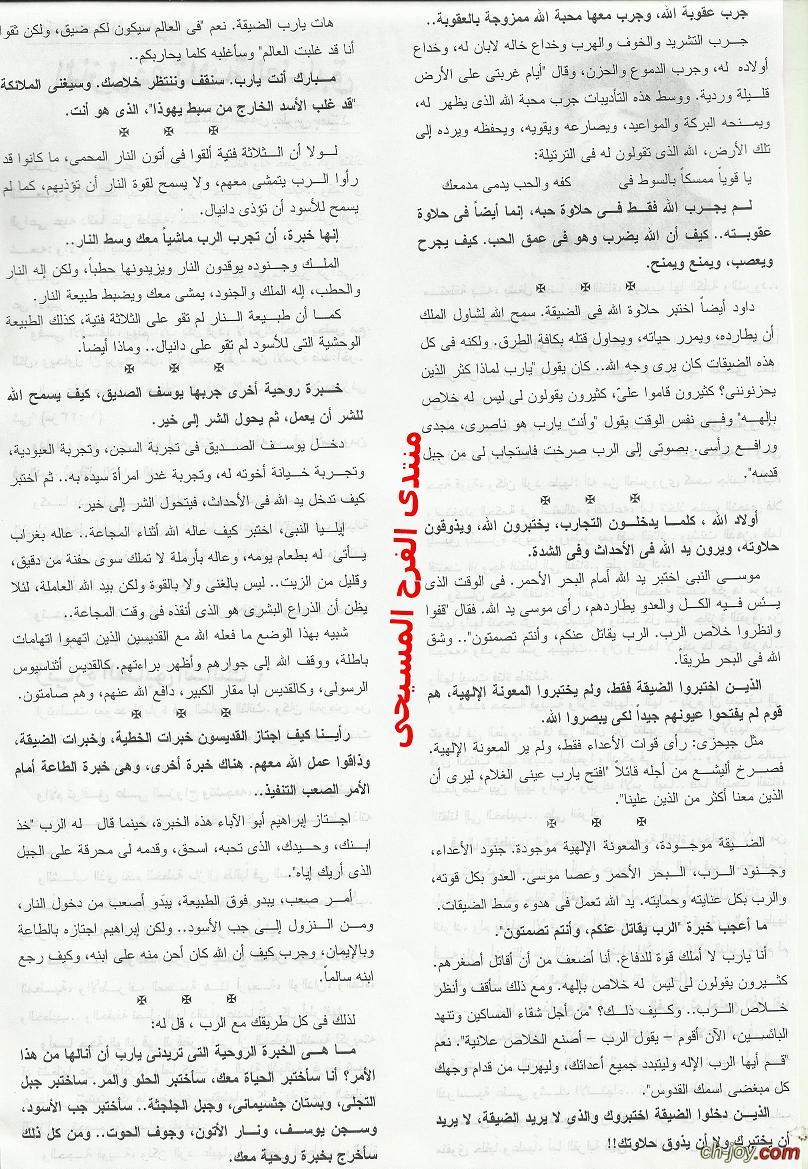 جرب عقوبة الله، وجرب معها محبة الله ممزوجة بالعقوبة..
جرب التشريد والخوف والهرب وخداع خاله لابان له، وخداع
أولاده له، وجرب الدموع والحزن، وقال "أيام غربتى على الأرض
قليلة وردية. ووسط هذه التأديبات جرب محبة الله الذى يظهر له،
ويمنحه البركة والمواعيد، ويصارعه ويقويه، ويحفظه ويرده إلى
تلك الأرض، الله الذى تقولون له فى الترتيلة:
يا قوياً ممسكاً بالسوط فى كفه والحب يدمى مدمعك
لم يجرب الله فقط فى حلاوة حبه، إنما أيضاً فى حلاوة
عقوبته.. كيف أن الله يضرب وهو فى عمق الحب. كيف يجرح
ويعصب، ويمنع ويمنح.
داود أيضاً اختبر حلاوة الله فى الضيقة. سمح الله لشاول الملك
أن يطارده، ويمرر حياته، ويحاول قتله بكافة الطرق. ولكنه فى كل
هذه الضيقات كان يرى وجه الله.. كان يقول "يارب لماذا كثر الذين
يحزنوننى؟ كثيرون قاموا علىّ، كثيرون يقولون لى ليس له خلاص
بإلهه" وفى نفس الوقت يقول "وأنت يارب هو ناصرى، مجدى
ورافع رأسى. بصوتى إلى الرب صرخت فاستجاب لى من جبل
قدسه".
أولاد الله ، كلما يدخلون التجارب، يختبرون الله، ويذوقون
حلاوته، ويرون يد الله فى الأحداث وفى الشدة.
موسى النبى اختبر يد الله أمام البحر الأحمر. فى الوقت الذى
يئس فيه الكل والعدو يطاردهم، رأى موسى يد الله. فقال "قفوا
وانظروا خلاص الرب. الرب يقاتل عنكم، وأنتم تصمتون".. وشق
الله فى البحر طريقاً.
الذين اختبروا الضيقة فقط، ولم يختبروا المعونة الإلهية، هم
قوم لم يفتحوا عيونهم جيداً لكى يبصروا الله.
مثل جيحزى: رأى قوات الأعداء فقط، ولم ير المعونة الإلهية.
فصرخ أليشع من أجله قائلاً "افتح يارب عينى الغلام، ليرى أن
الذين معنا أكثر من الذين علينا".
الضيقة موجودة، والمعونة الإلهية موجودة. جنود الأعداء،
وجنود الرب، البحر الأحمر وعصا موسى. العدو بكل قوته،
والرب بكل عنايته وحمايته. يد الله تعمل فى هدوء وسط الضيقات.
ما أعجب خبرة "الرب يقاتل عنكم، وأنتم تصمتون".
أنا يارب لا أملك قوة للدفاع. أنا أضعف من أن أقاتل أصغرهم.
كثيرون يقولون لى ليس له خلاص بإلهه. ومع ذلك سأقف وأنظر
خلاص الرب.. وكيف ذلك؟ "من أجل شقاء المساكين وتنهد
البائسين، الآن أقوم – يقول الرب – أصنع الخلاص علانية". نعم
"قم أيها الرب الإله وليتبدد جميع أعدائك، وليهرب من قدام وجهك
كل مبغضى اسمك القدوس".
الذين دخلوا الضيقة اختبروك والذى لا يريد الضيقة، لا يريد
أن يختبرك ولا أن يذوق حلاوتك!!
هات يارب الضيقة. نعم "فى العالم سيكون لكم ضيق، ولكن ثقوا
أنا قد غلبت العالم" وسأغلبه كلما يحاربكم..
مبارك أنت يارب. سنقف وننتظر خلاصك. وسيغنى الملائكة
"قد غلب الأسد الخارج من سبط يهوذا"، الذى هو أنت.
لولا أن الثلاثة فتية ألقوا فى أتون النار المحمى، ما كانوا قد
رأوا الرب يتمشى معهم، ولا يسمح لقوة النار أن تؤذيهم، كما لم
يسمح للأسود أن تؤذى دانيال.
إنها خبرة، أن تجرب الرب ماشياً معك وسط النار..
الملك وجنوده يوقدون النار ويزيدونها حطباً، ولكن إله النار
والحطب، إله الملك والجنود، يمشى معك ويضبط طبيعة النار.
كما أن طبيعة النار لم تقو على الثلاثة فتية، كذلك الطبيعة
الوحشية التى للأسود لم تقو على دانيال.. وماذا أيضاً.
خبرة روحية أخرى جربها يوسف الصديق، كيف يسمح الله
للشر أن يعمل، ثم يحول الشر إلى خير.
دخل يوسف الصديق فى تجربة السجن، وتجربة العبودية،
وتجربة خيانة أخوته له، وتجربة غدر امرأة سيده به.. ثم اختبر
كيف تدخل يد الله فى الأحداث، فيتحول الشر إلى خير.
إيليا النبى، اختبر كيف عاله الله أثناء المجاعة.. عاله بغراب
يأتى له بطعام يومه، وعاله بأرملة لا تملك سوى حفنة من دقيق،
وقليل من الزيت.. ليس بالغنى ولا بالقوة ولكن بيد الله العاملة، لئلا
يظن أن الذراع البشرى هو الذى أنقذه فى وقت المجاعة..
شبيه بهذا الوضع ما فعله الله مع القديسين الذين اتهموا اتهامات
باطلة، ووقف الله إلى جوارهم وأظهر براءتهم. كالقديس أثناسيوس
الرسولى، وكالقديس ابا مقار الكبير، دافع الله عنهم، وهم صامتون.
رأينا كيف اجتاز القديسون خبرات الخطية، وخبرات الضيقة،
وذاقوا عمل الله معهم. هناك خبرة أخرى، وهى خبرة الطاعة أمام
الأمر الصعب التنفيذ..
اجتاز إبراهيم أبو الآباء هذه الخبرة، حينما قال له الرب "خذ
ابنك، وحيدك، الذى تحبه، اسحق، وقدمه لى محرقة على الجبل
الذى أريك إياه".
أمر صعب، يبدو فوق الطبيعة، يبدو أصعب من دخول النار،
ومن النزول إلى جب الأسود.. ولكن إبراهيم اجتازه بالطاعة
وبالإيمان، وجرب كيف أن الله كان أحن منه على ابنه، وكيف رجع
ابنه سالماً.
لذلك فى كل طريقك مع الرب ، قل له:
ما هى الخبرة الروحية التى تريدنى يارب أن أنالها من هذا
الأمر؟ أنا سأختبر الحياة معك، سأختبر الحلو والمر. ساختبر جبل
التجلى، وبستان جثسيمانى، وجبل الجلجثة.. سأختبر جب الأسود،
وسجن يوسف، ونار الأتون، وجوف الحوت.. ومن كل ذلك
سأخرج بخبرة روحية معك.
منتدى الفرح المسيحى
ch-joy.com